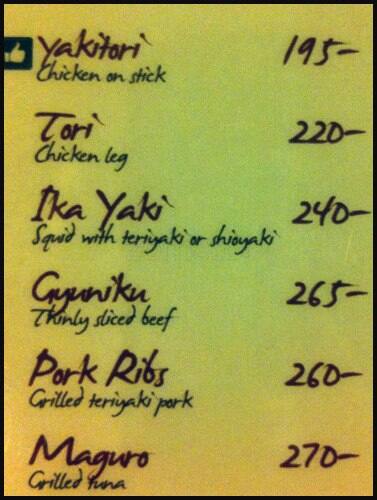 Yakitori 195-
Chicken on stick
Tori 220-
Chicken leg
Ika Yaki 240-
Squid with teriyaki or shioyaki
Gyuniku 265-
Thinly sliced beef
Pork Ribs 260-
Grilled teriyaki pork
Maguro 270-
Grilled tuna